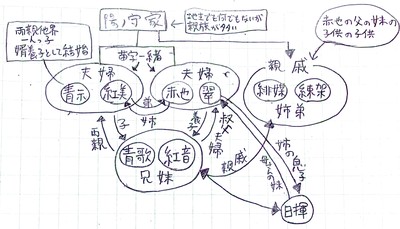 陽ノ守家
地主でも何でもないが
親族が多い
赤也の父の妹の
子供の子供
両親他界
一人っ子
婿養子として結婚
苗字一緒
夫婦
青示
紅美
夫婦
赤也
翠
親戚
緋媒
練架
姉弟
弟
姉
両親
子
養子
叔父夫婦
青歌
紅音
兄妹
親戚
姉の息子
母さんの妹
日揮